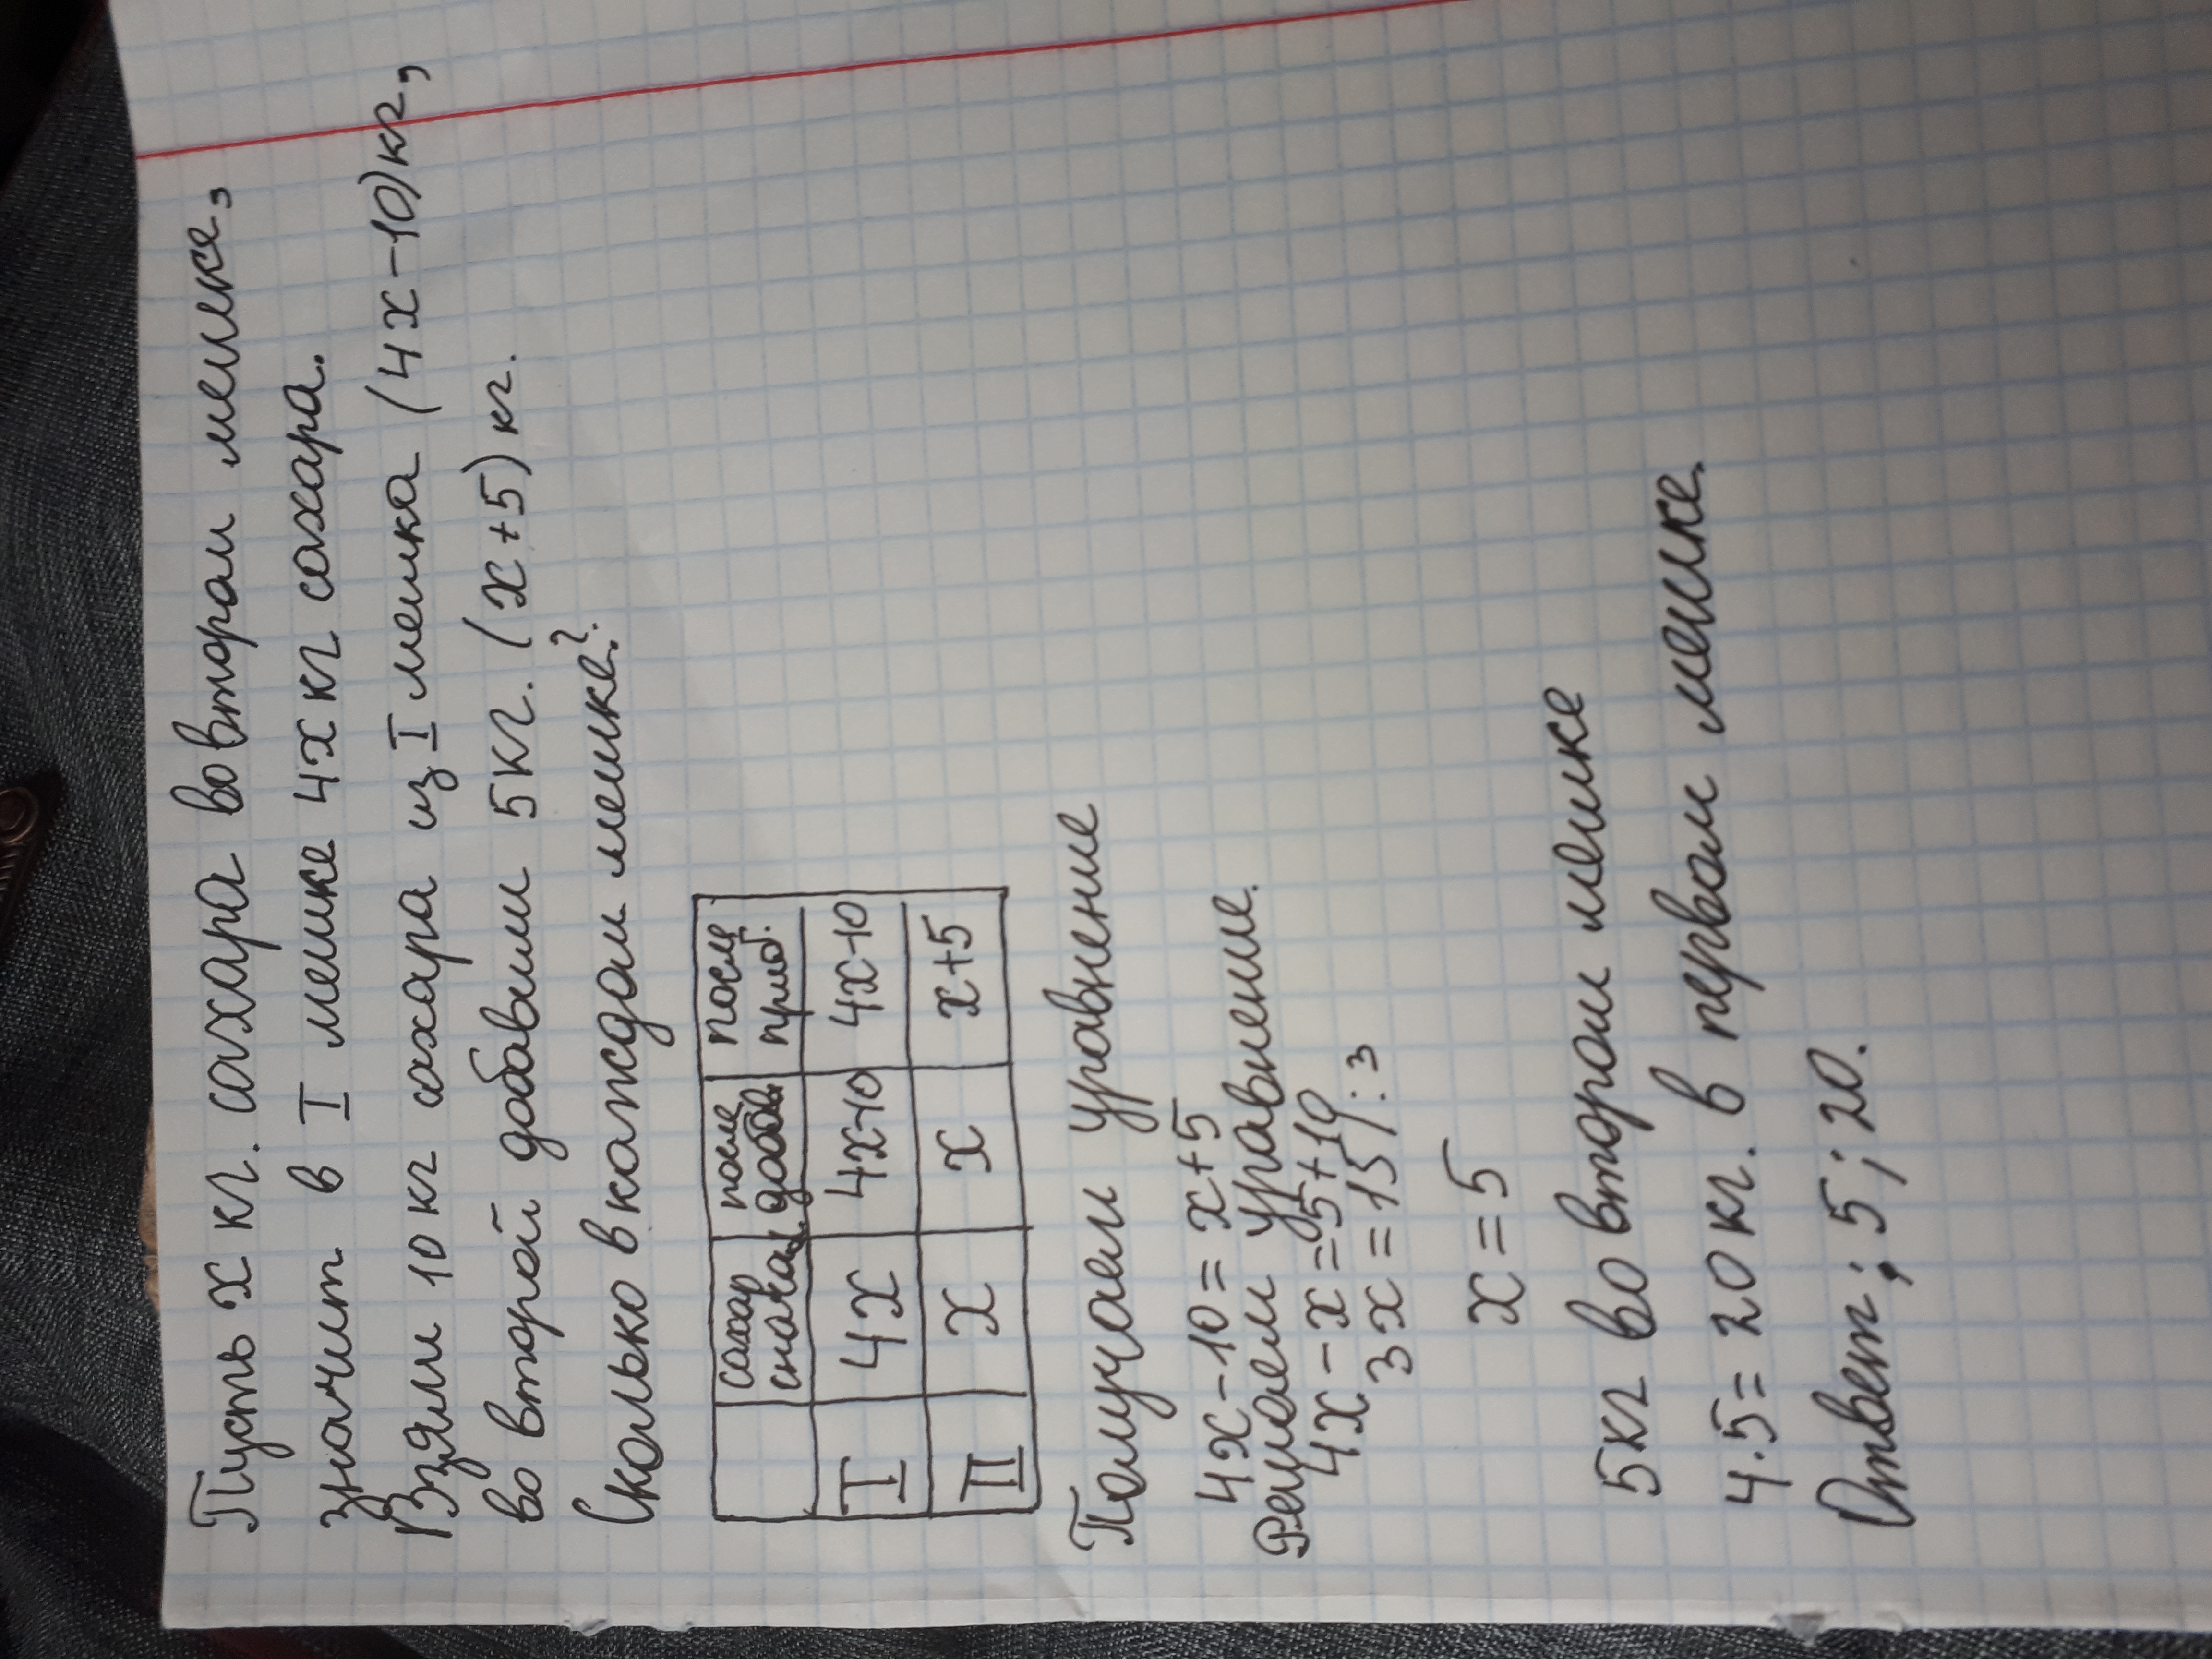 Пусть х кг. сахара во втором мешке,
значит в I мешке 4х кг сахара.
Взяли 10 кг сахара из I мешка (4х-10)кг,
во второй добавили 5кг. (х+5) кг.
Сколько в каждом мешке?
сахар сначала после добав. после приб.
I 4х 4х-10 4х-10
II х х х+5
Получаем уравнение
4х-10=х+5
Решаем уравнение.
4х-х=5+10
3х=15/:3
х=5
5кг во втором мешке
4·5=20кг. в первом мешке.
Ответ; 5; 20.